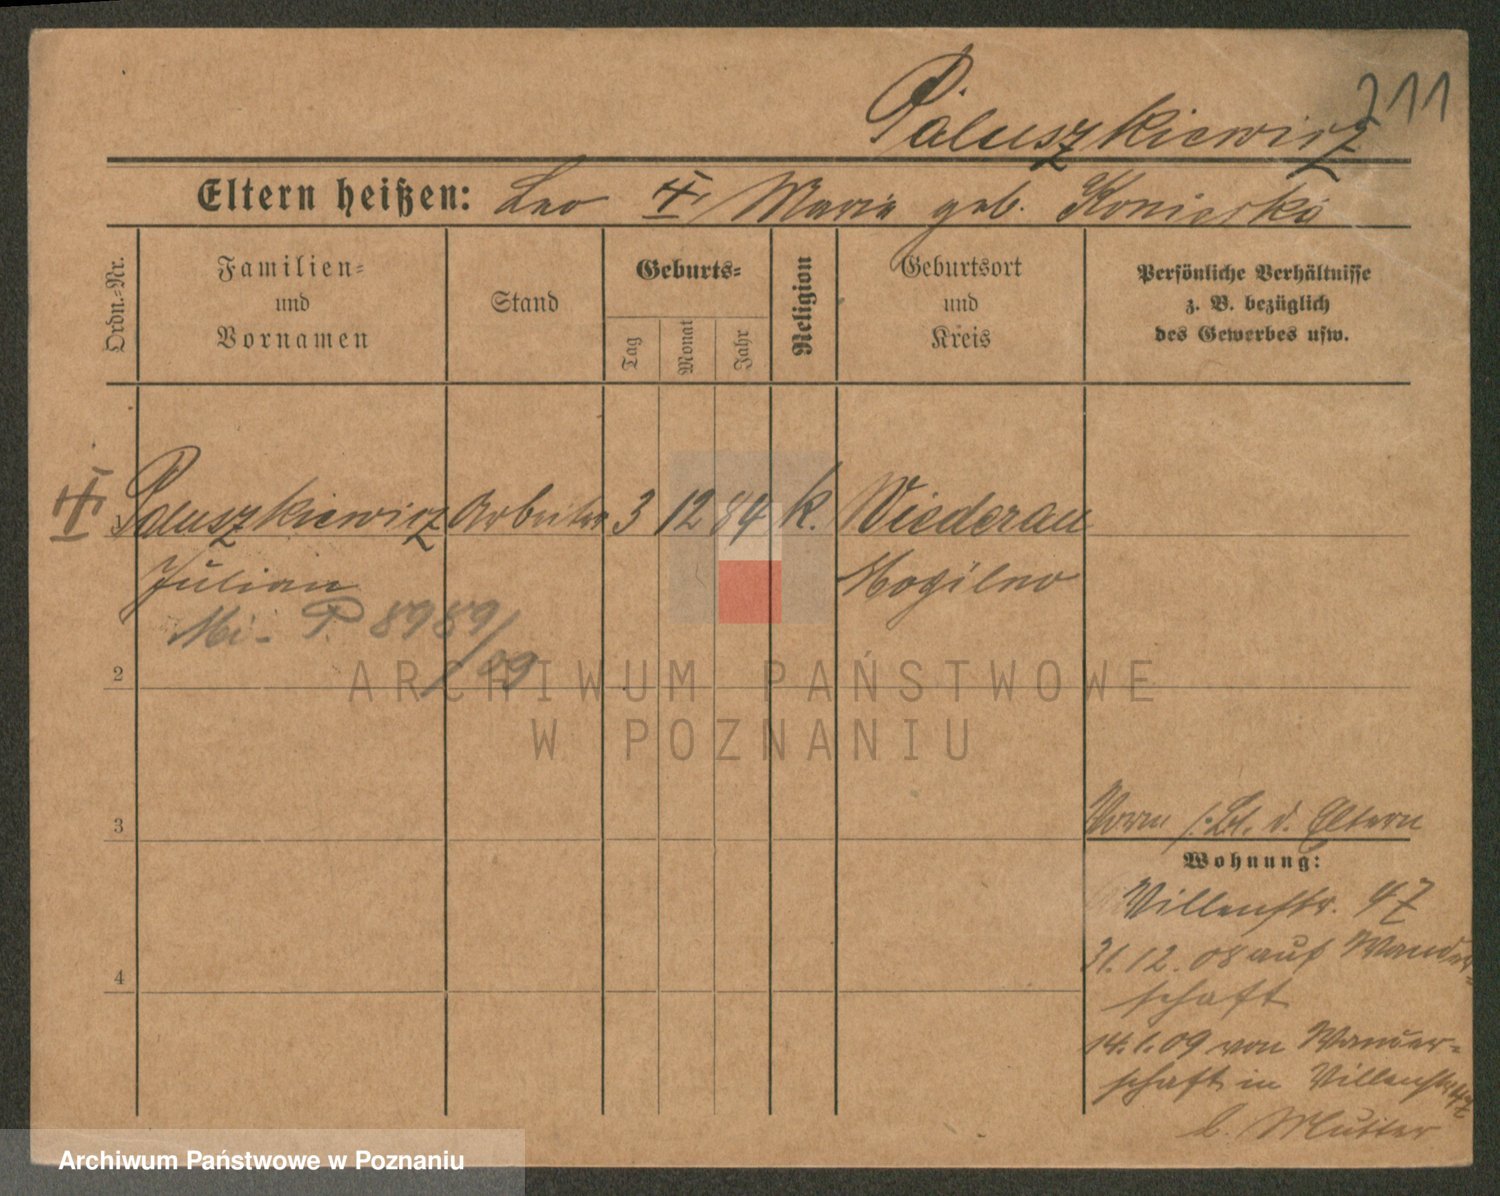 211
Paluszkiewicz
Eltern heißen: Leo Maria geb. Konieczka
Ordn.-Nr.
Familien=
und
Vornamen
Stand
Geburts=
Tag
Monat
Jahr
Religion
Geburtsort
und
Kreis
Persönliche Verhältnisse
z. B. bezüglich
des Gewerbes usw.
Paluszkiewicz Arbeiter 3 12 84 k. Wiederau
Julian Mogilno
Mi- P 8989/09
2
3
4
d. Eltern
Wohnung:
Villenstr. 47
31.12.08 auf Wander-
schaft
14.1.09 von Wander-
schaft in Villenstr. 47
b. Mutter
ARCHIWUM PAŃSTWOWE
W POZNANIU
Archiwum Państwowe w Poznaniu